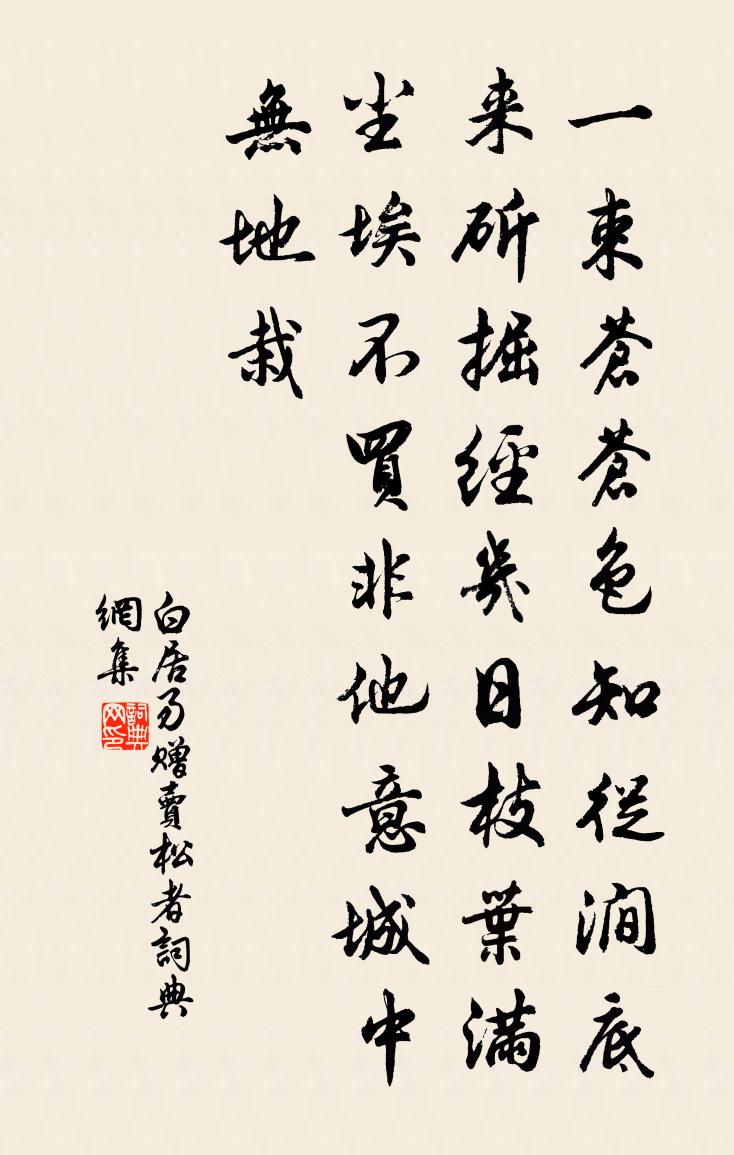 一束蒼蒼色知從澗底
来斫掘經幾日枝葉滿
尘埃不買非他意城中
無地栽
白居易赠賣松者詞典
網集
詞典
网印